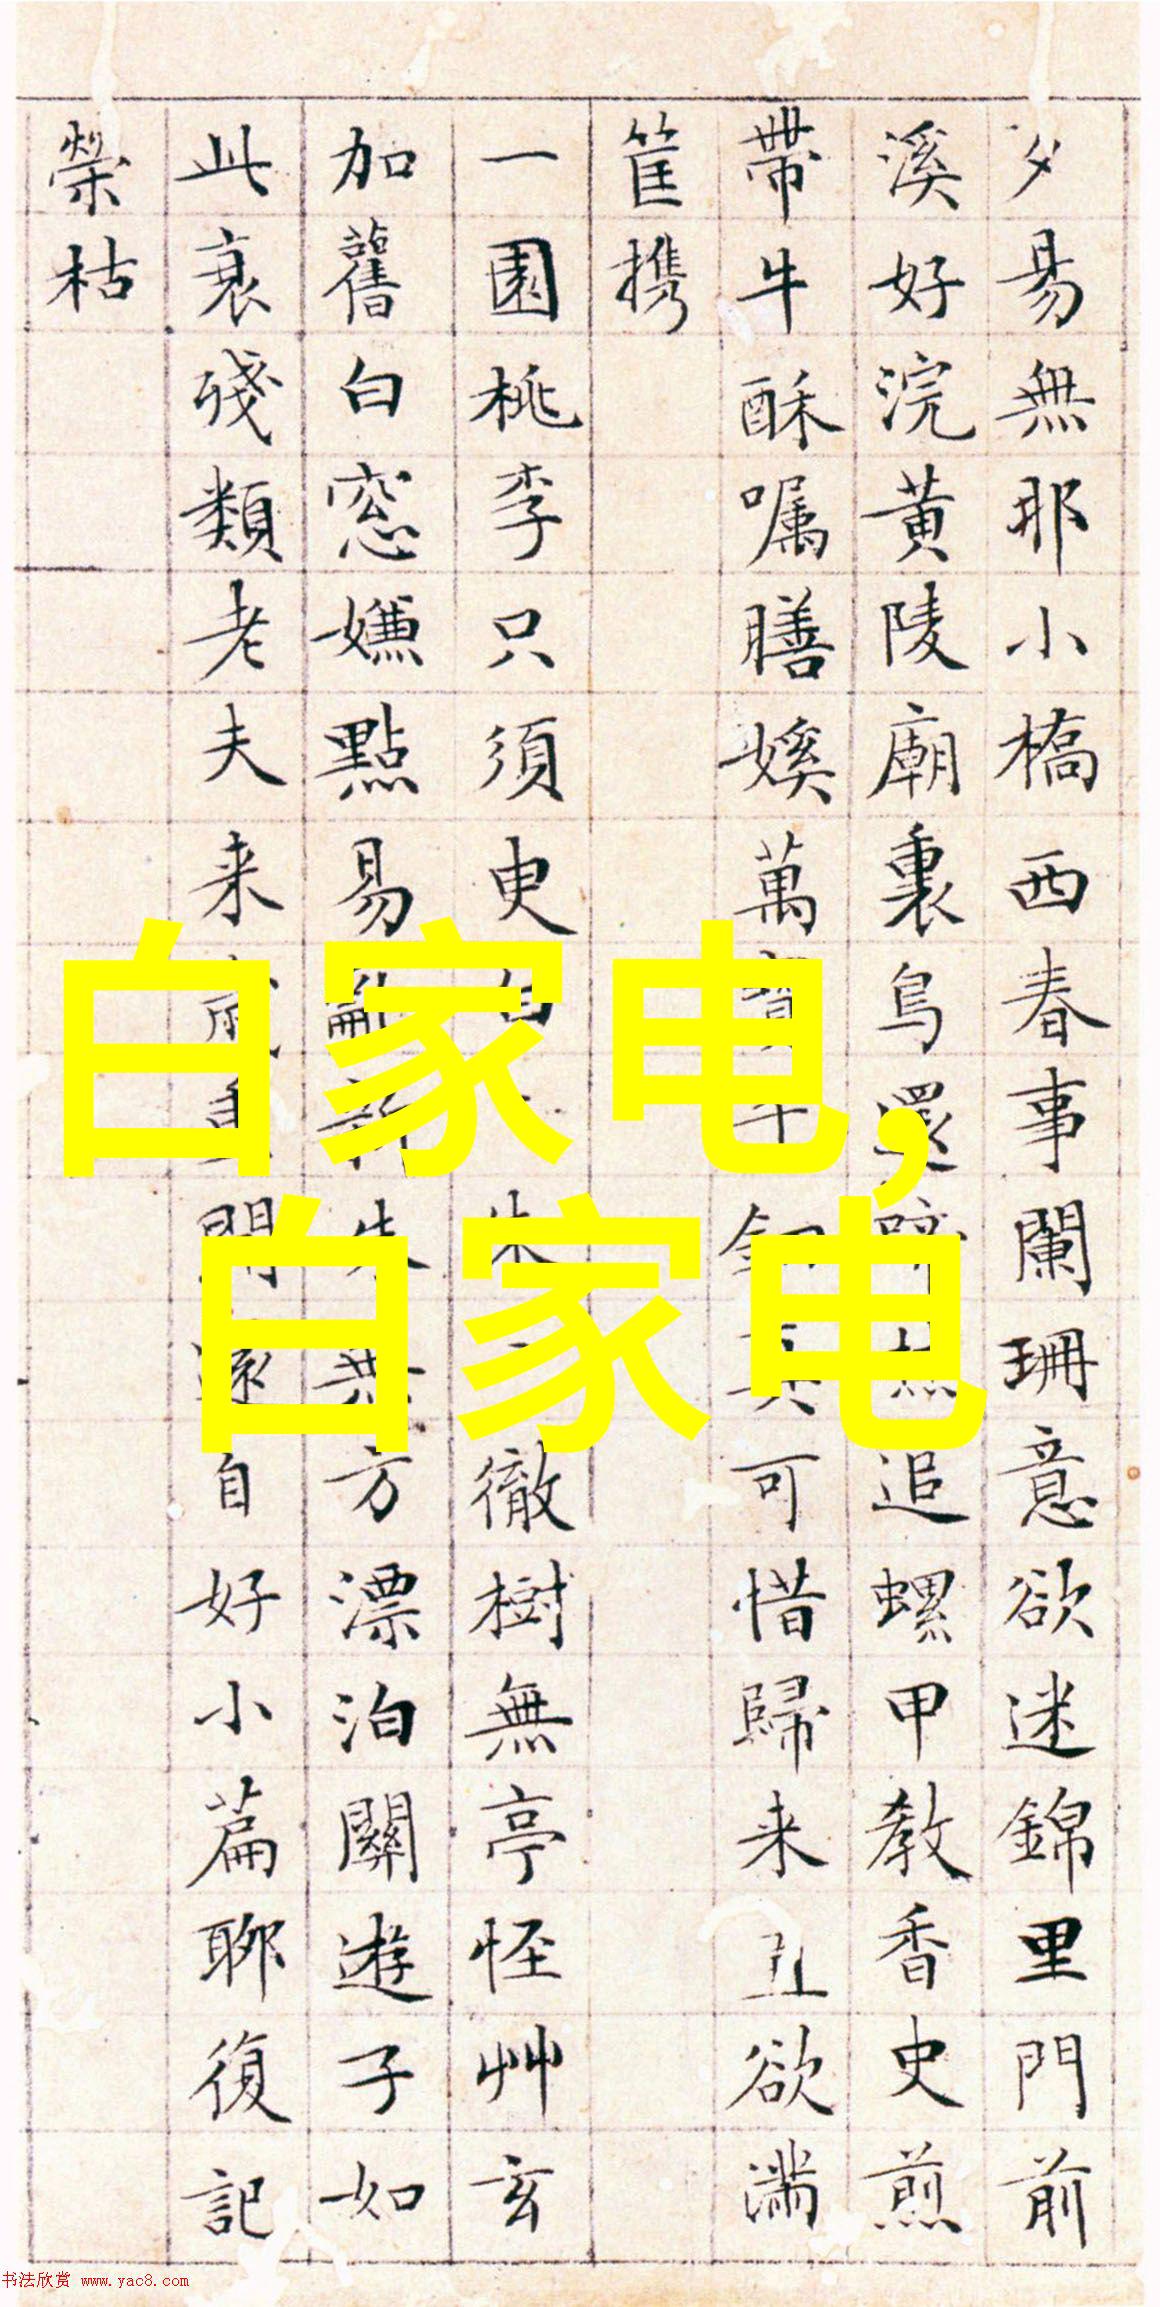 夕易無耶小橋西春事闌珊意欲迷錦里門前
溪好浣黃陵廟裏鳥還追螺甲教香史煎
帶牛酥嘱膳媛萬可惜歸来丑欲滿
筐携
一園桃李只須更徹樹無亭怪艸玄
加舊白窓嫌點易朱無方漂泊關遊子如
此衰殘類老夫来自好小篇聊復記
榮枯
白家电,
白家电
书法欣赏 www.yac8.com